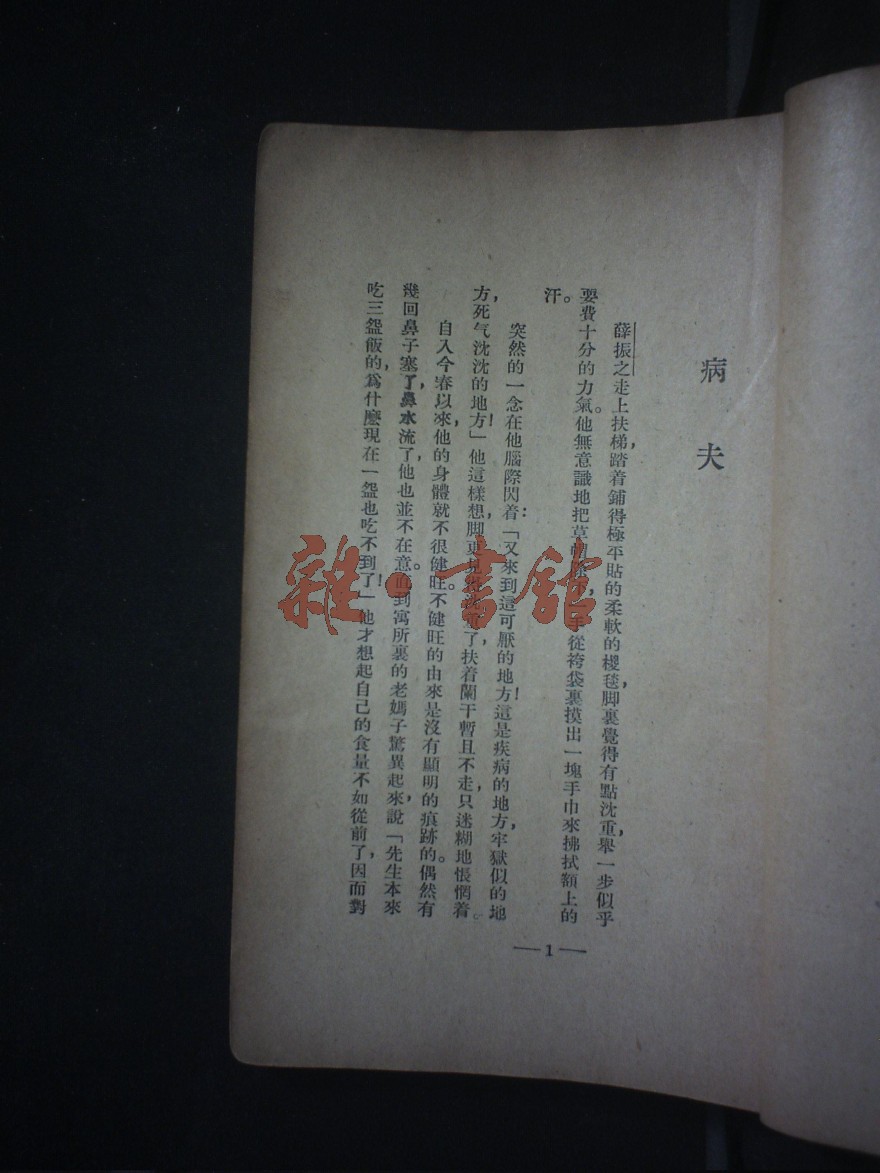 病夫
薛振之走上扶梯，踏着鋪得極平貼的柔軟的椶毯，脚裏覺得有點沈重，舉一步似乎
要費十分的力氣。他無意識地把草帽除下，一手從袴袋裏摸出一塊手巾來拂拭額上的
汗。
突然的一念在他腦際閃着：「又來到這可厭的地方！這是疾病的地方，牢獄似的地
方，死气沈沈的地方！」他這樣想，脚更見得沈重了，扶着闌干暫且不走，只迷糊地悵惘着。
自入今春以來，他的身體就不很健旺。不健旺的由來是沒有顯明的痕跡的。偶然有
幾回鼻子塞了，鼻水流了，他也並不在意。直到寓所裏的老媽子驚異起來，說「先生本來
吃三盌飯的，爲什麼現在一盌也吃不到了！」他才想起自己的食量不如從前了，因而對
—1—
雜·書館